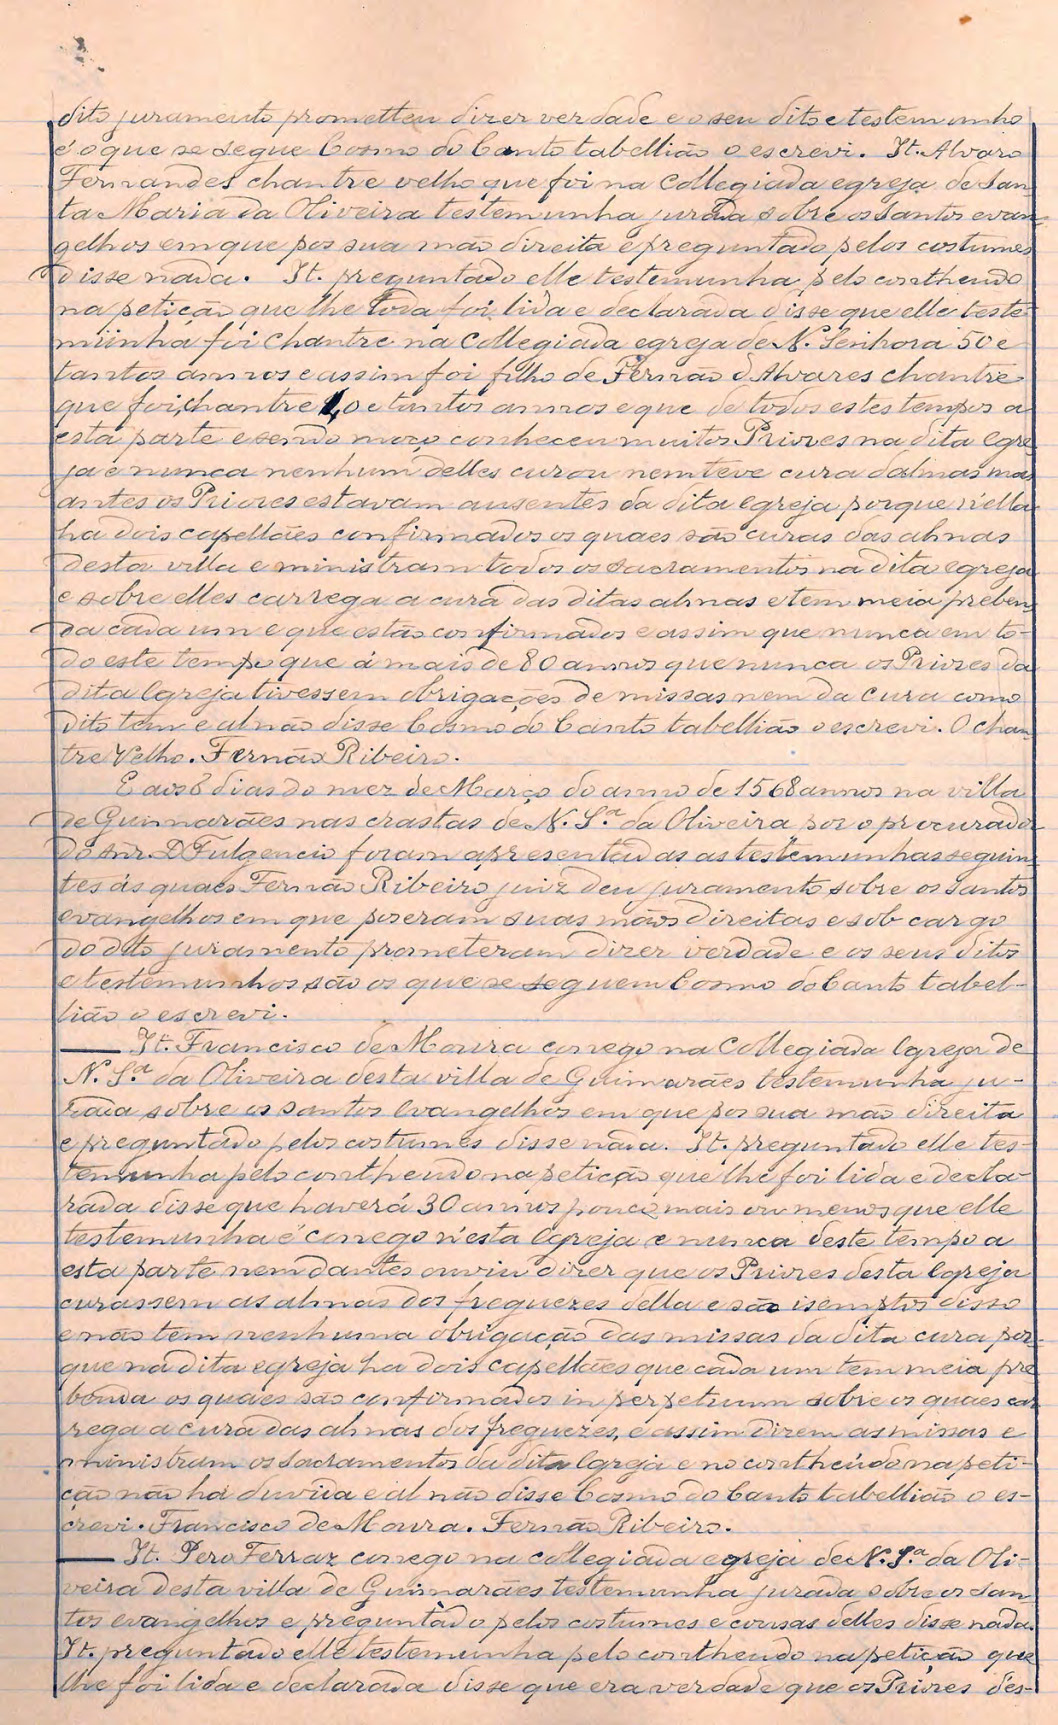 dito juramento prometteu dizer verdade e o seu dito e testemunho
é o que se segue Cosmo do Canto tabellião o escrevi. It. Alvaro
Fernandes chantre velho que foi na Collegiada egreja de San-
ta Maria da Oliveira testemunha jurada sobre os Santos evan-
gelhos em que pos sua mão direita e preguntado pelos costumes
disse nada. It. preguntado elle testemunha pelo contheudo
na petição que lhe toda foi lida e declarada disse que elle teste-
munha foi chantre na Collegiada egreja de N. Senhora 50 e
tantos annos e assim foi filho de Fernão d'Alvares chantre
que foi chantre e tantos annos e que de todos estes tempos a
esta parte e sendo moço conheceu muitos Priores na dita Egre-
ja e nunca nenhum delles curou nem teve cura dalmas mas
antes os Priores estavam ausentes da dita Egreja porque n'ella
ha dois capellães confirmados os quaes são curas das almas
desta villa e ministram todos os sacramentos na dita egreja
e sobre elles carrega a cura das ditas almas e tem meia preben-
da cada um e que estão confirmados e assim que nunca em to-
do este tempo que á mais de 80 annos que nunca os Priores da
dita Egreja tivessem obrigações de missas nem da cura como
dito tem e al não disse Cosmo do Canto tabellião o escrevi. O chan-
tre Velho. Fernão Ribeiro.
E aos 8 dias do mez de Março do anno de 1568 annos na villa
de Guimarães nas crastas de N. S.ª da Oliveira por o procurador
do Snr. D Fulgencio foram apresentadas as testemunhas seguin-
tes ás quaes Fernão Ribeiro juiz deu juramento sobre os santos
evangelhos em que poseram suas mãos direitas e sob cargo
do dito juramento prometeram dizer verdade e os seus ditos
e testemunhos são os que se seguem Cosmo do Canto tabel-
lião o escrevi.
It. Francisco de Moura conego na Collegiada Egreja de
N. S.ª da Oliveira desta villa de Guimarães testemunha ju-
rada sobre os santos Evangelhos em que pos sua mão direita
e preguntado pelos costumes disse nada. It. preguntado elle tes-
temunha pelo contheudo na petição que lhe foi lida e decla-
rada disse que haverá 30 annos pouco mais ou menos que elle
testemunha é conego n'esta Egreja e nunca deste tempo a
esta parte nem dantes ouviu dizer que os Priores desta Egreja
curassem as almas dos freguezes della e são isemptos disso
e não tem nenhuma obrigação das missas da dita cura por-
que na dita egreja ha dois capellães que cada um tem meia pre-
benda os quaes são confirmados in perpetuum sobre os quaes car-
rega a cura das almas dos freguezes, e assim dizem as missas e
ministram os Sacramentos da dita Egreja e no contheúdo na peti-
ção não há duvida e al não disse Cosmo do Canto tabellião o es-
crevi. Francisco de Moura. Fernão Ribeiro.
It. Pero Ferraz conego na collegiada egreja de N. S.ª da Oli-
veira desta villa de Guimarães testemunha jurada sobre os San-
tos evangelhos e preguntado pelos costumes e cousas delles disse nada.
It. preguntado elle testemunha pelo contheudo na petição que
lhe foi lida e declarada disse que era verdade que os Priores des-